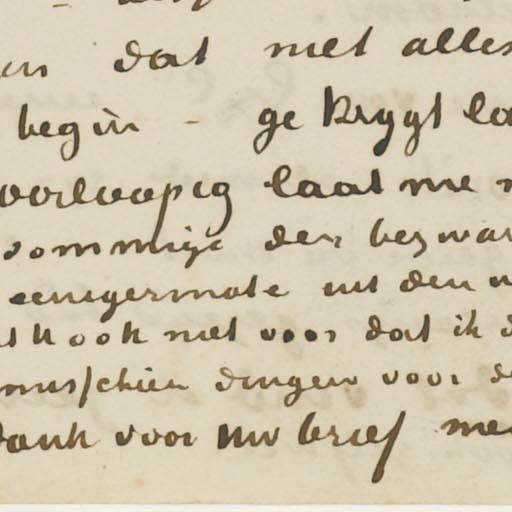 dat niet alles
begin - ge krygt
voorloopig laat me
sommige der bezwar
eenigermate uit den
ook niet voor dat ik
misschien dingen voor
dank voor uw brief met